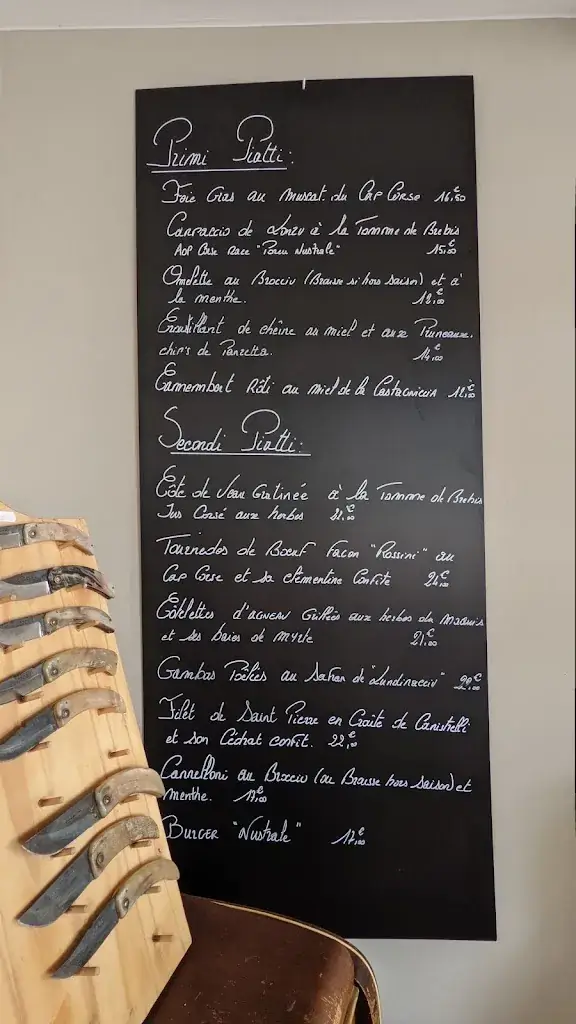 Primi Piatti:
Foie Gras au muscat du Cap Corse 16,50€
Carpaccio de Lonzu à la Tomme de Brebis
AOP Corse Race "Porcu Nustrale" 15,00€
Omelette au Brocciu (Brousse si hors saison) et à
la menthe. 12,00€
Croustillant de chèvre au miel et aux Pruneaux.
chips de Panzetta. 14,00€
Camembert Rôti au miel de la Castagniccia 12,00€
Secondi Piatti:
Côte de Veau Gratinée à la Tomme de Brebis
Jus Corsé aux herbes 22,00€
Tournedos de Boeuf Façon "Rossini" au
Cap Corse et sa clémentine Confite 24,00€
Côtelettes d'agneau Grillées aux herbes du Maquis
et ses baies de myrte 21,00€
Gambas Poêlées au Safran de "Lundinacciu" 20,00€
Filet de Saint Pierre en Croûte de Canistrelli
et son Cédrat confit. 22,00€
Cannelloni au Brocciu (ou Brousse hors saison) et
menthe. 17,00€
BURGER "Nustrale" 17,00€